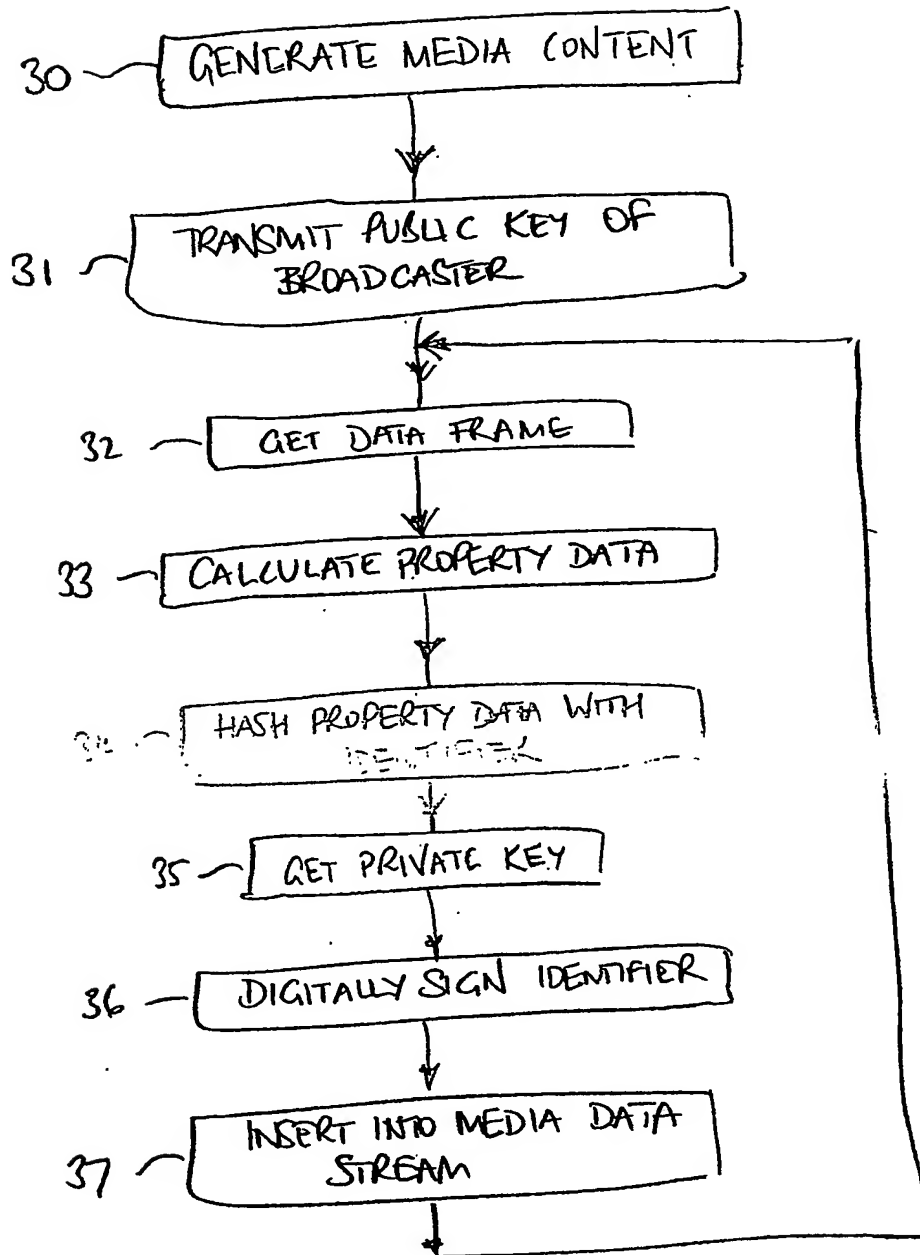 30 GENERATE MEDIA CONTENT
31 TRANSMIT PUBLIC KEY OF
BROADCASTER
32 GET DATA FRAME
33 CALCULATE PROPERTY DATA
34 HASH PROPERTY DATA WITH
IDENTIFIER
35 GET PRIVATE KEY
36 DIGITALLY SIGN IDENTIFIER
37 INSERT INTO MEDIA DATA
STREAM